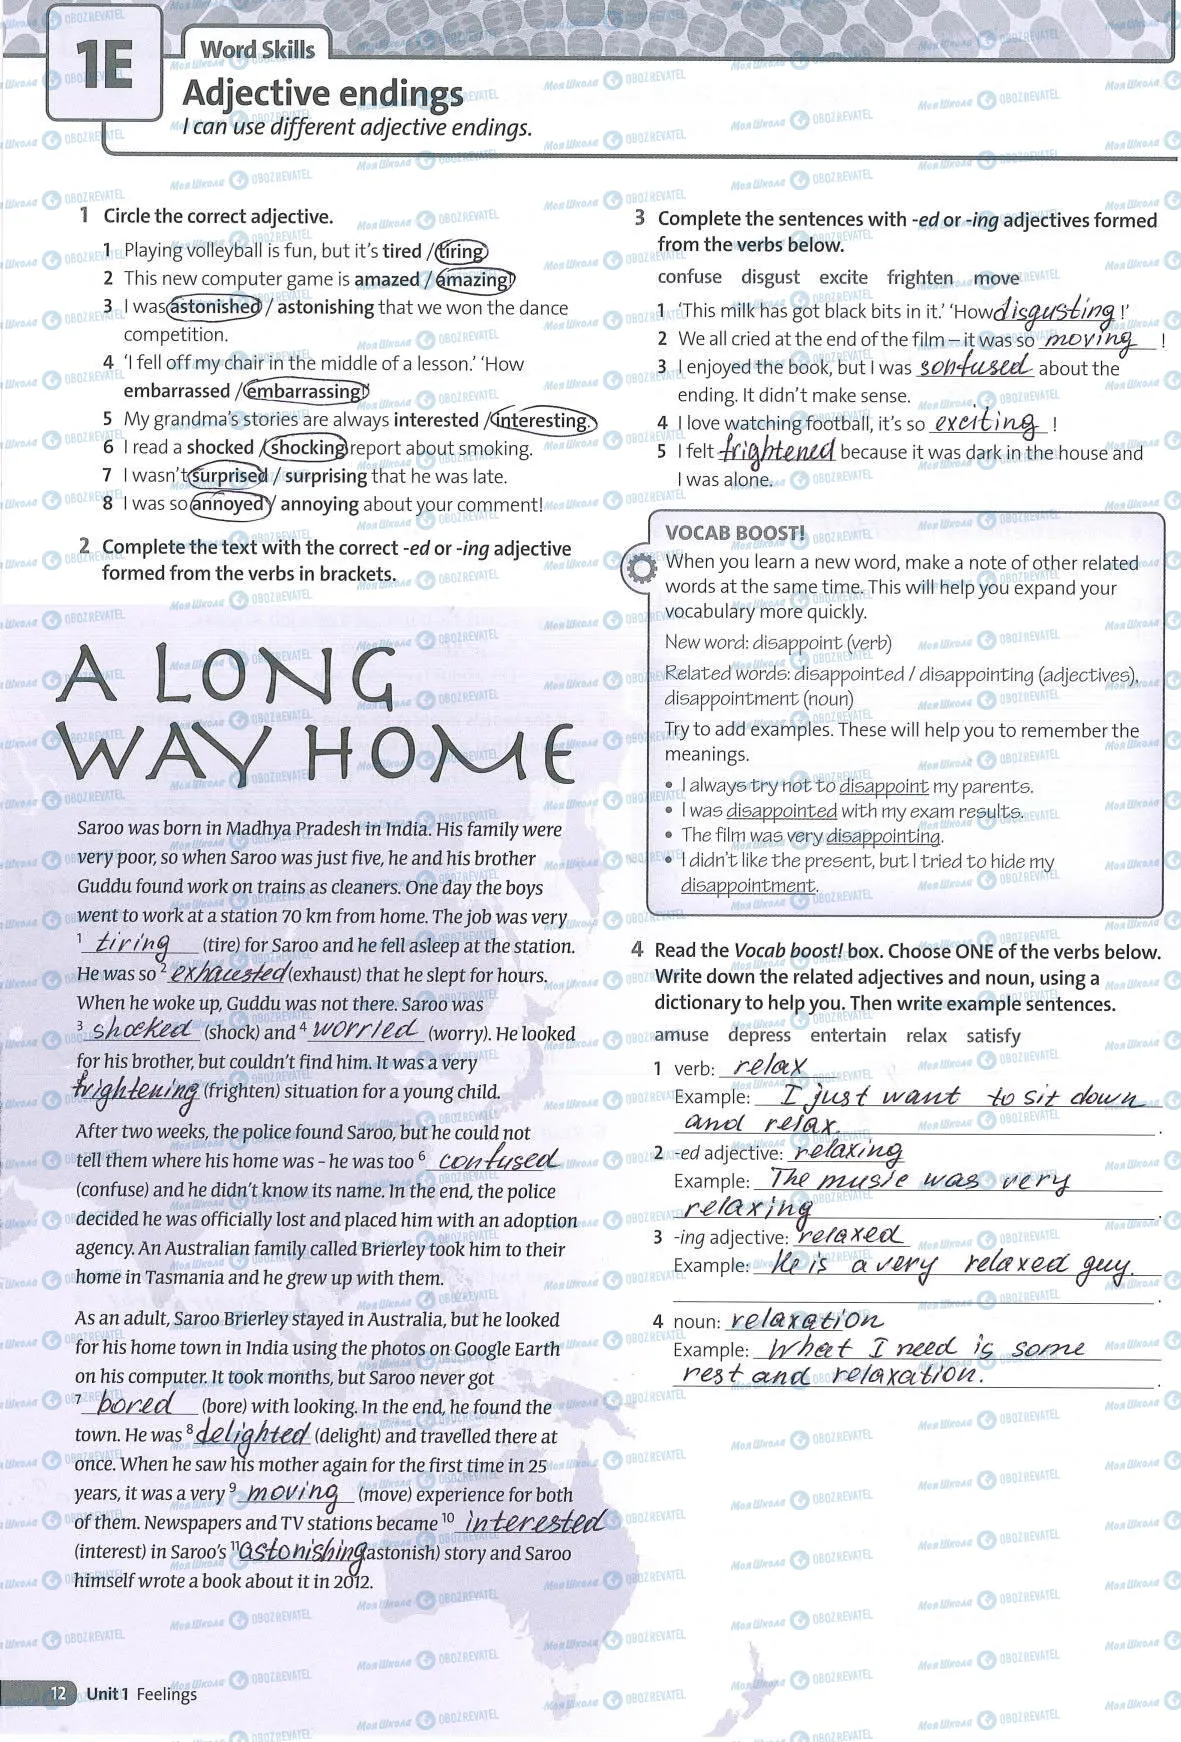 1E
Word Skills
Adjective endings
I can use different adjective endings.
1 Circle the correct adjective.
1 Playing volleyball is fun, but it's tired / tiring
2 This new computer game is amazed / amazing!
3 I was astonished / astonishing that we won the dance
competition.
4 'I fell off my chair in the middle of a lesson.' 'How
embarrassed / embarrassing!'
5 My grandma's stories are always interested / interesting.
6 I read a shocked / shocking report about smoking.
7 I wasn't surprised / surprising that he was late.
8 I was so annoyed / annoying about your comment!
2 Complete the text with the correct -ed or -ing adjective
formed from the verbs in brackets.
A LONG
WAY HOME
Saroo was born in Madhya Pradesh in India. His family were
very poor, so when Saroo was just five, he and his brother
Guddu found work on trains as cleaners. One day the boys
went to work at a station 70 km from home. The job was very
1 tiring (tire) for Saroo and he fell asleep at the station.
He was so 2 exhausted (exhaust) that he slept for hours.
When he woke up, Guddu was not there. Saroo was
3 shocked (shock) and 4 worried (worry). He looked
for his brother, but couldn't find him. It was a very
frightening (frighten) situation for a young child.
After two weeks, the police found Saroo, but he could not
tell them where his home was – he was too 6 confused
(confuse) and he didn't know its name. In the end, the police
decided he was officially lost and placed him with an adoption
agency. An Australian family called Brierley took him to their
home in Tasmania and he grew up with them.
As an adult, Saroo Brierley stayed in Australia, but he looked
for his home town in India using the photos on Google Earth
on his computer. It took months, but Saroo never got
7 bored (bore) with looking. In the end, he found the
town. He was 8 delighted (delight) and travelled there at
once. When he saw his mother again for the first time in 25
years, it was a very 9 moving (move) experience for both
of them. Newspapers and TV stations became 10 interested
(interest) in Saroo's 11 astonishing (astonish) story and Saroo
himself wrote a book about it in 2012.
3 Complete the sentences with -ed or -ing adjectives formed
from the verbs below.
confuse disgust excite frighten move
1 'This milk has got black bits in it.' 'How disgusting !'
2 We all cried at the end of the film – it was so moving !
3 I enjoyed the book, but I was sonfused about the
ending. It didn't make sense.
4 I love watching football, it's so exciting !
5 I felt frightened because it was dark in the house and
I was alone.
VOCAB BOOST!
When you learn a new word, make a note of other related
words at the same time. This will help you expand your
vocabulary more quickly.
New word: disappoint (verb)
Related words: disappointed / disappointing (adjectives),
disappointment (noun)
Try to add examples. These will help you to remember the
meanings.
• I always try not to disappoint my parents.
• I was disappointed with my exam results.
• The film was very disappointing.
• I didn't like the present, but I tried to hide my
disappointment.
4 Read the Vocab boost! box. Choose ONE of the verbs below.
Write down the related adjectives and noun, using a
dictionary to help you. Then write example sentences.
amuse depress entertain relax satisfy
1 verb: relax
Example: I just want to sit down
and relax.
2 -ed adjective: relaxing
Example: The music was very
relaxing.
3 -ing adjective: relaxed
Example: He is a very relaxed guy.
4 noun: relaxation
Example: What I need is some
rest and relaxation.
12 Unit 1 Feelings
Моя Школа OBOZREVATEL